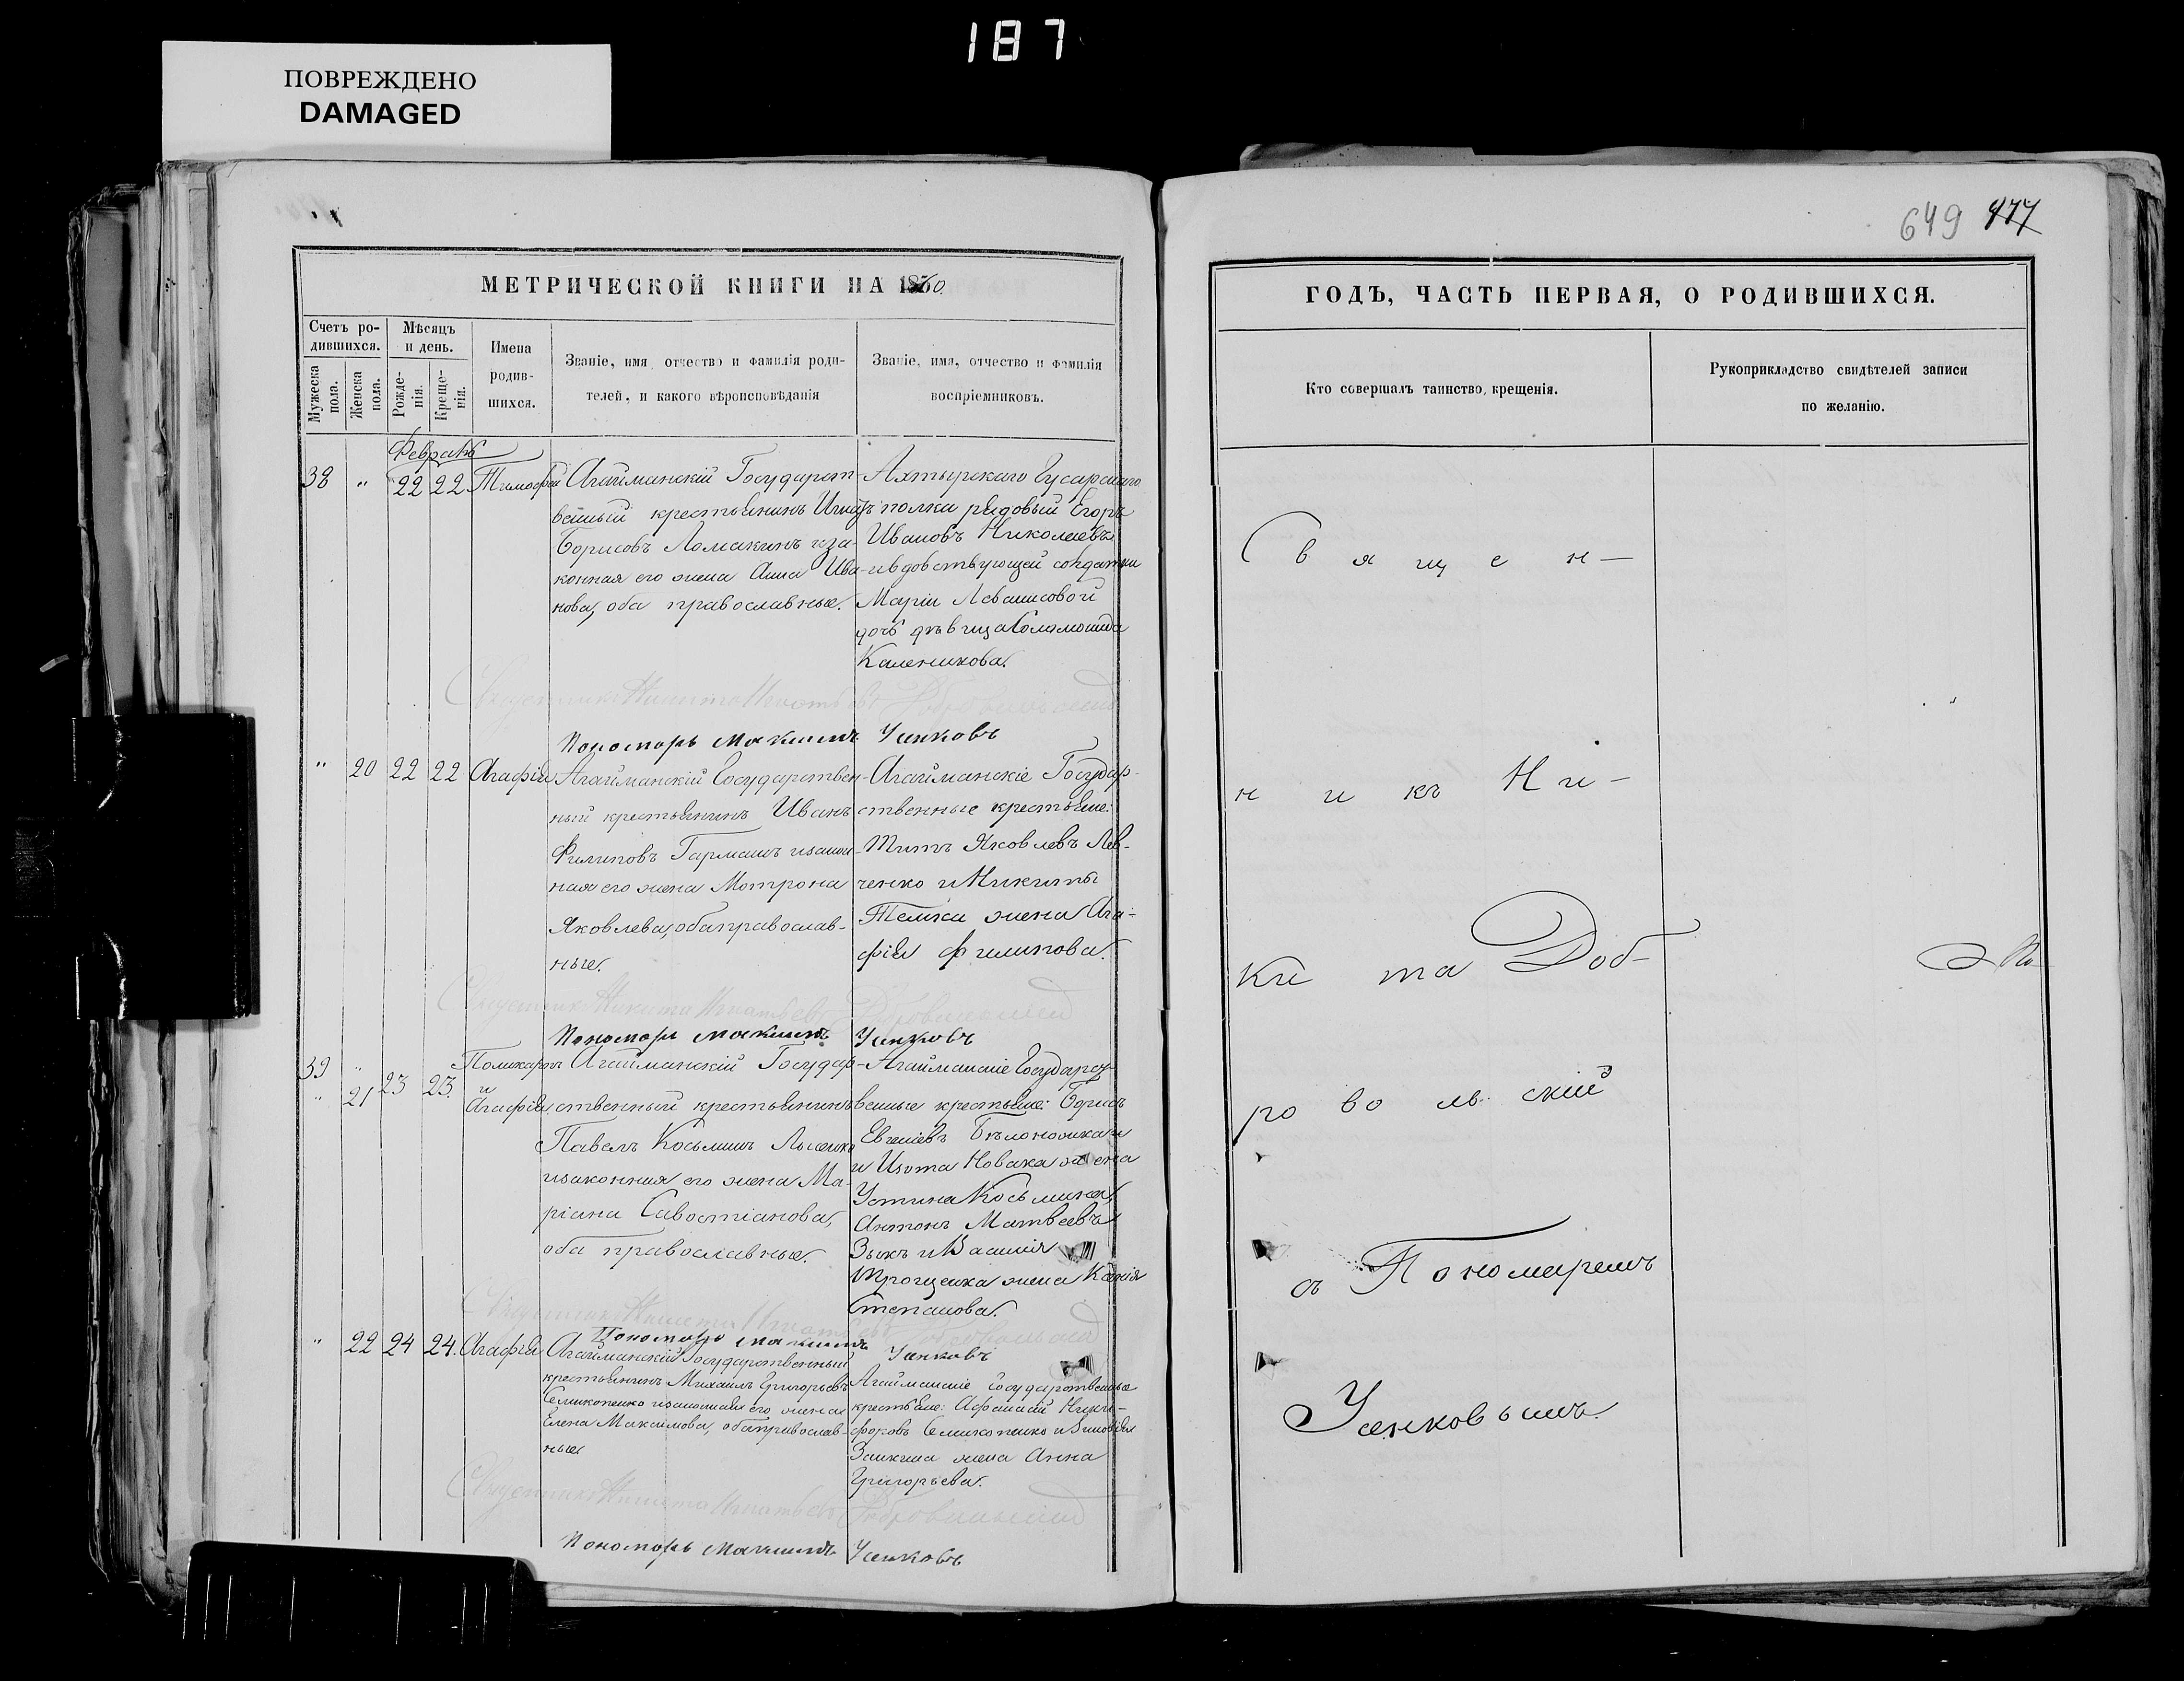 187
ПОВРЕЖДЕНО
DAMAGED
649 477
МЕТРИЧЕСКОЙ КНИГИ НА 1860.
Счетъ ро-
дившихся.
Мѣсяцъ
и день.
Имена
родив-
шихся.
Званіе, имя отчество и фамилія роди-
телей, и какого вѣроисповѣданія
Званіе, имя, отчество и фамилія
воспріемниковъ.
Мужеска
пола.
Женска
пола.
Рожде-
нія.
Креще-
нія.
Февраль
38 " 22 22 Тимофей
Агайманскій Государст-
венный крестьянинъ Игнатъ
Борисовъ Ломакинъ и за-
конная его жена Анна Ива-
нова, оба православные.
Ахтырскаго Гусарскаго
полка рядовый Егоръ
Ивановъ Николаевъ
и вдовствующей солдатки
Маріи
дочь дѣвица
Каленикова.
Священникъ Никита Игнатьевъ Добровольскій
Пономарь Максимъ Усенковъ
" 20 22 22 Агафія
Агайманскій Государствен-
ный крестьянинъ Иванъ
Филиповъ Гармашъ и закон-
ная его жена Мотрона
Яковлева, оба православ-
ные.
Агайманскіе Государ-
ственные крестьяне:
Титъ Яковлевъ Лев-
ченко и Никиты
жена Ага-
фія Филипова.
Священникъ Никита Игнатьевъ Добровольскій
Пономарь Максимъ Усенковъ
39 " Поликарпъ
" 21 23 23 и Агафія
Агайманскій Государ-
ственный крестьянинъ
Павелъ Косьминъ Лысенко
и законная его жена Ма-
ріана Савостіанова,
оба православные.
Агайманскіе Государст-
венные крестьяне: Борисъ
Евгеніевъ
и Изота Новака жена
Устина Косьмина,
Антонъ Матвеевъ
Зыкъ и Василія
Трощенка жена Ксенія
Степанова.
Священникъ Никита Игнатьевъ Добровольскій
Пономарь Максимъ Усенковъ
" 22 24 24. Агафія
Агайманскій Государственный
крестьянинъ Михаилъ Григорьевъ
Семикопенко и законная его жена
Елена Максимова, оба православ-
ные
Агайманскіе Государственные
крестьяне: Афанасій Ники-
форовъ Семикопенко и Зиновія
Заикина жена Анна
Григорьева.
Священникъ Никита Игнатьевъ Добровольскій
Пономарь Максимъ Усенковъ
ГОДЪ, ЧАСТЬ ПЕРВАЯ, О РОДИВШИХСЯ.
Кто совершалъ таинство, крещенія.
Рукоприкладство свидѣтелей записи
по желанію.
Священ-
никъ Ни-
кита Доб-
ровольскій
съ Пономаремъ
Усенковымъ.